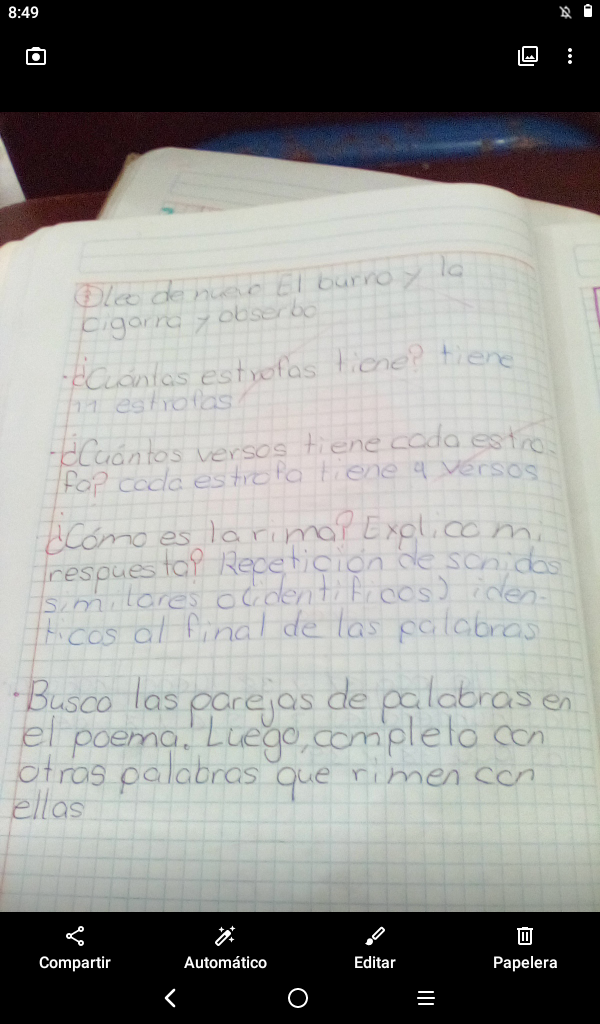 8:49
① leo de nuevo El burro y la
cigarra y obserbo
·¿Cuántas estrofas tiene? tiene
11 estrofas
·¿Cuántos versos tiene cada estro-
fa? cada estrofa tiene 4 versos
¿Cómo es la rima? Explico mi
respuesta? Repetición de sonidos
similares o(identificos) iden-
ticos al final de las palabras
·Busco las parejas de palabras en
el poema. Luego, completo con
otras palabras que rimen con
ellas
Compartir Automático Editar Papelera